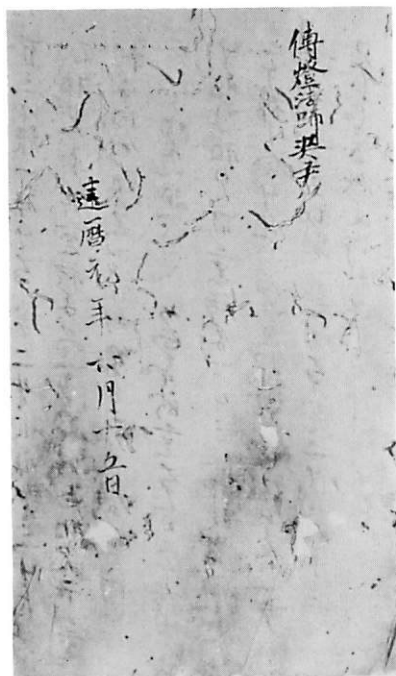 傳燈法師
建暦元年六月十五日